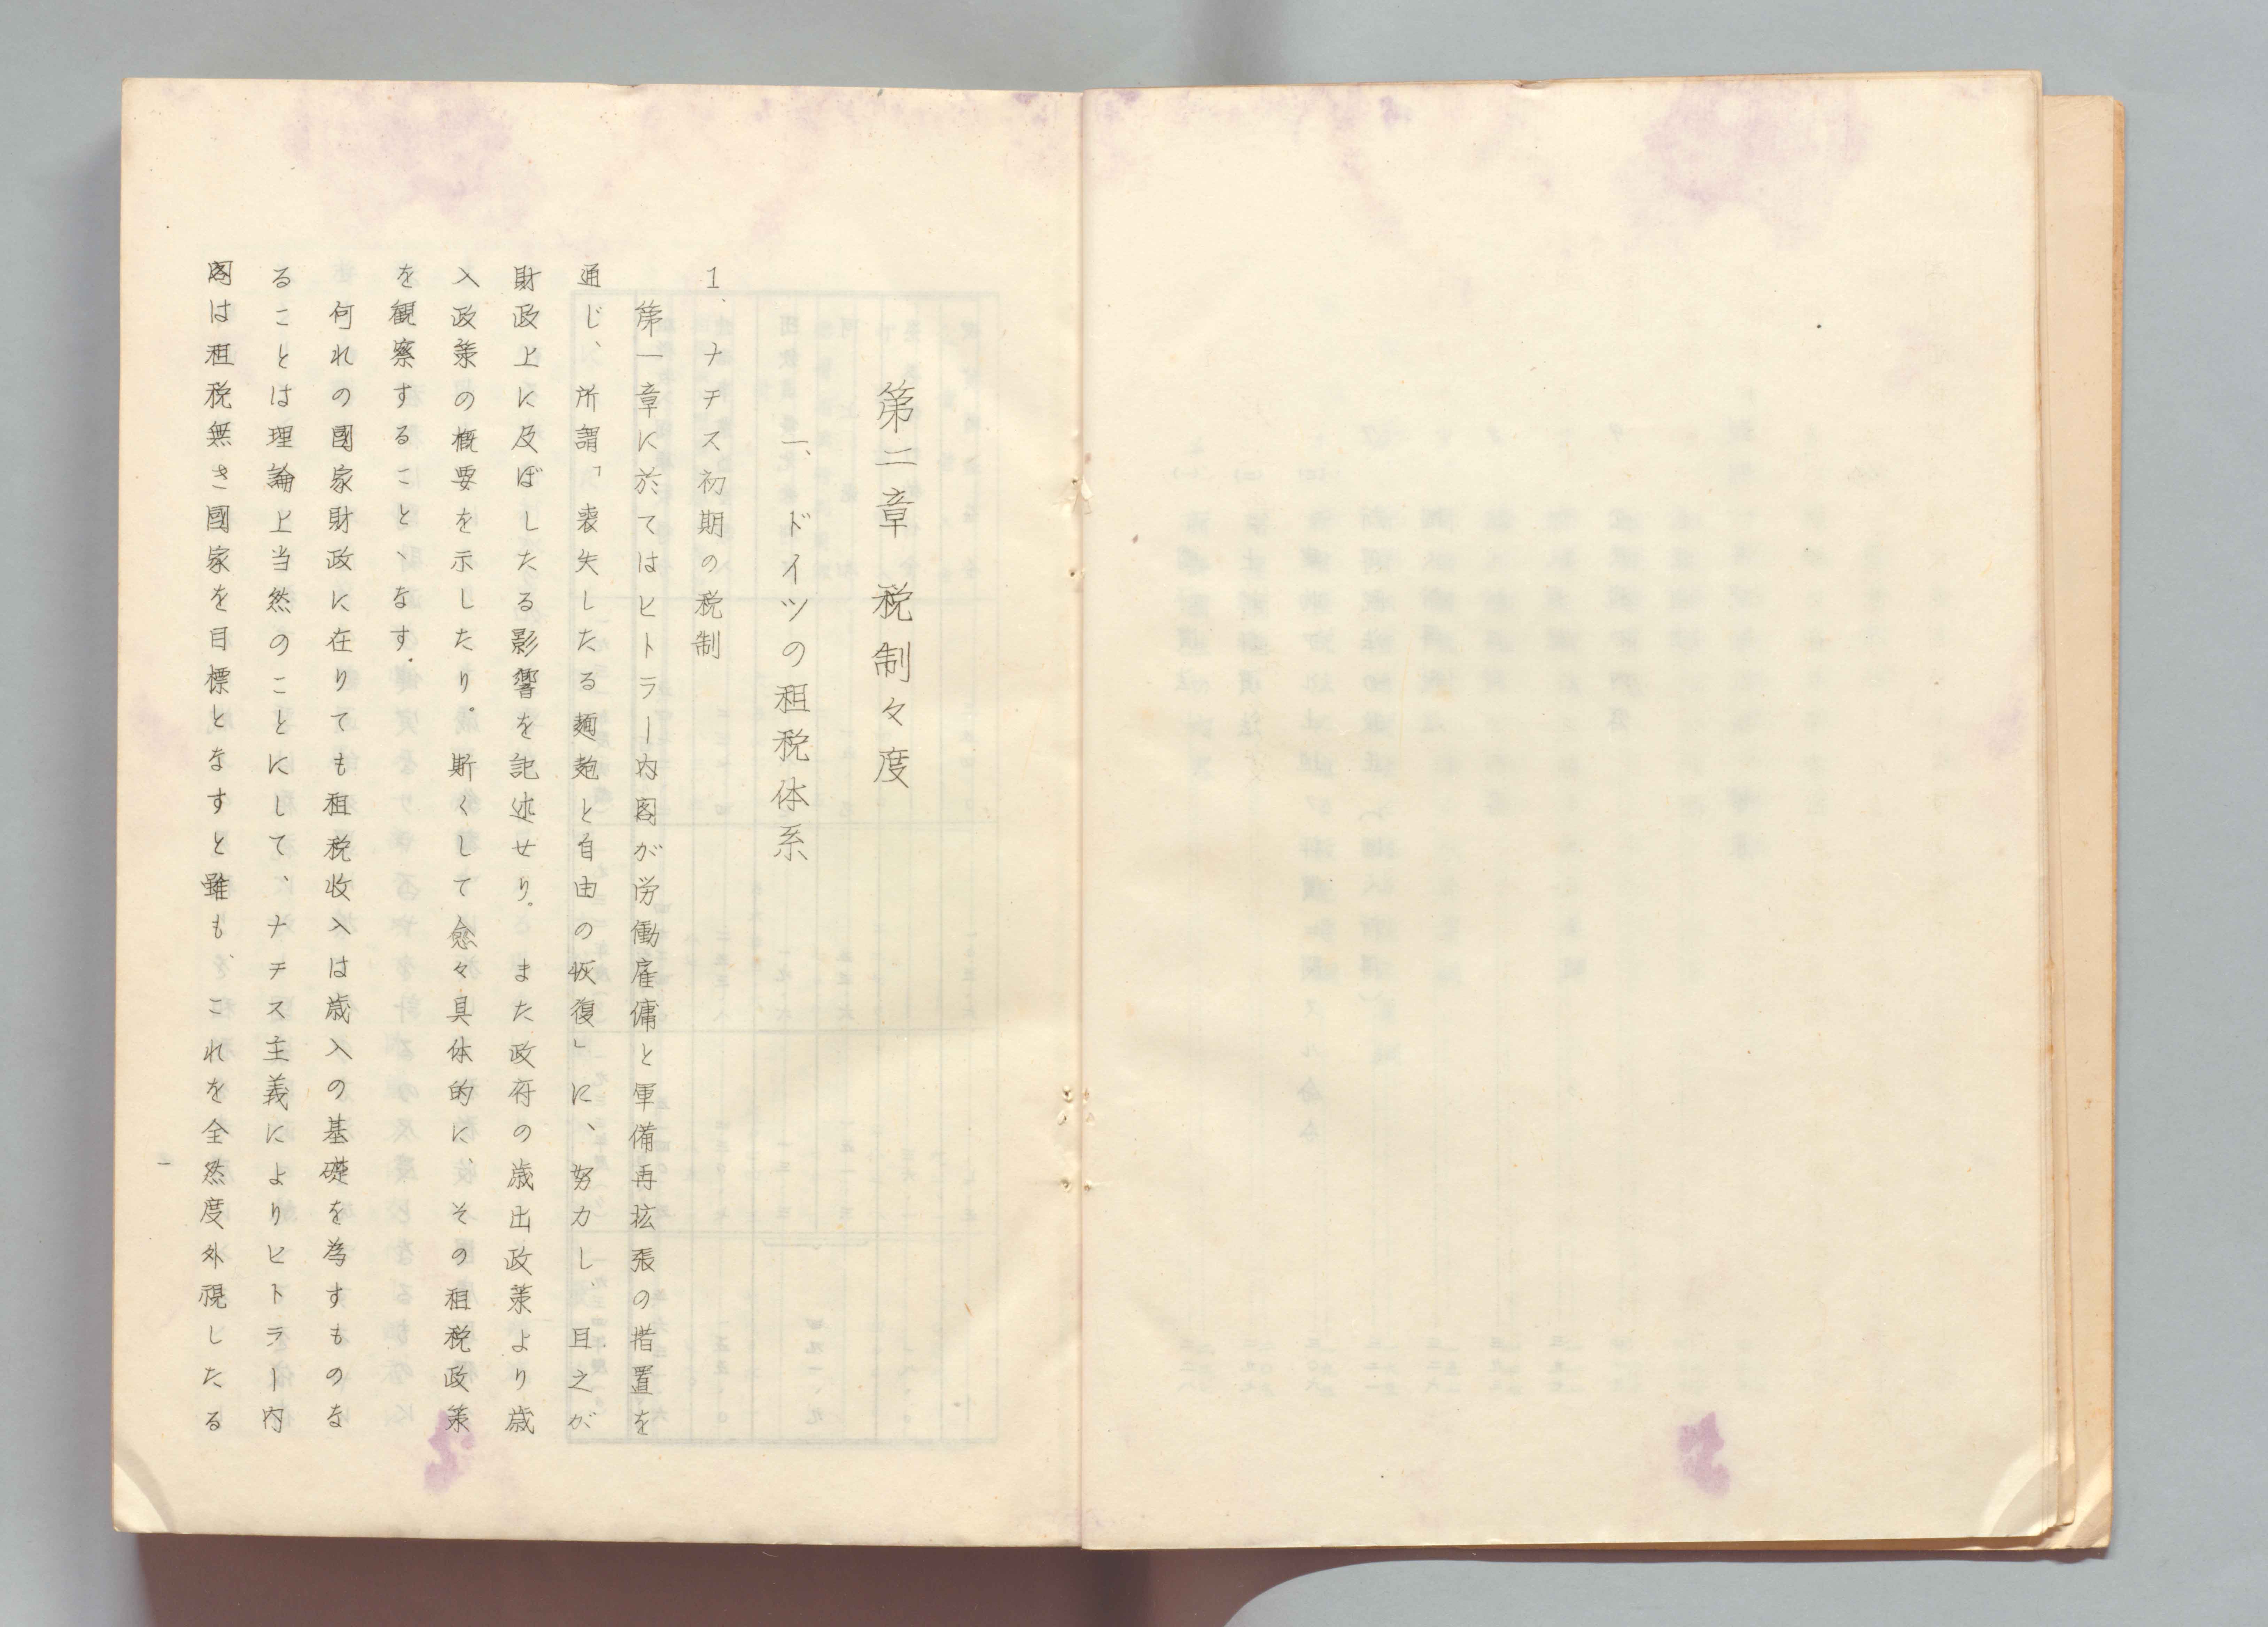 第二章　税制々度
一、ドイツの租税体系
1、ナチス初期の税制
第一章に於てはヒトラー内閣が労働雇傭と軍備再拡張の措置を
通じ、所謂「喪失したる麺麭と自由の恢復」に、努力し、且之が
財政上に及ぼしたる影響を記述せり。また政府の歳出政策より歳
入政策の概要を示したり。斯くして愈々具体的に、その租税政策
を観察することゝなす.
何れの國家財政に在りても租税收入は歳入の基礎を為すものな
ることは理論上当然のことにして、ナチス主義によりヒトラー内
閣は租税無き國家を目標となすと雖も、これを全然度外視したる
一